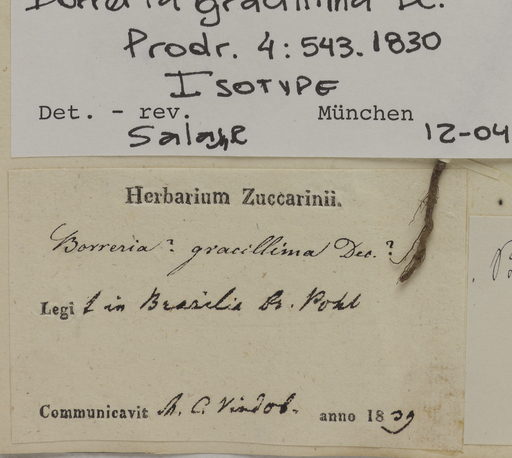 Borreria gracillima DC.
Prodr. 4:543. 1830
ISOTYPE
Det. - rev. München
Salas, R 12-04
Herbarium Zuccarinii.
Borreria? gracillima Dec.?
Legit in Brasilia Dr. Pohl
Communicavit M. C. Vindob. anno 1839